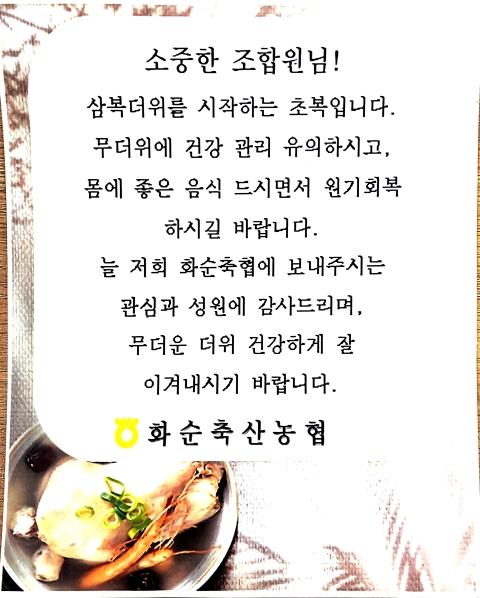 소중한 조합원님!
삼복더위를 시작하는 초복입니다.
무더위에 건강 관리 유의하시고,
몸에 좋은 음식 드시면서 원기회복
하시길 바랍니다.
늘 저희 화순축협에 보내주시는
관심과 성원에 감사드리며,
무더운 더위 건강하게 잘
이겨내시기 바랍니다.
화순축산농협